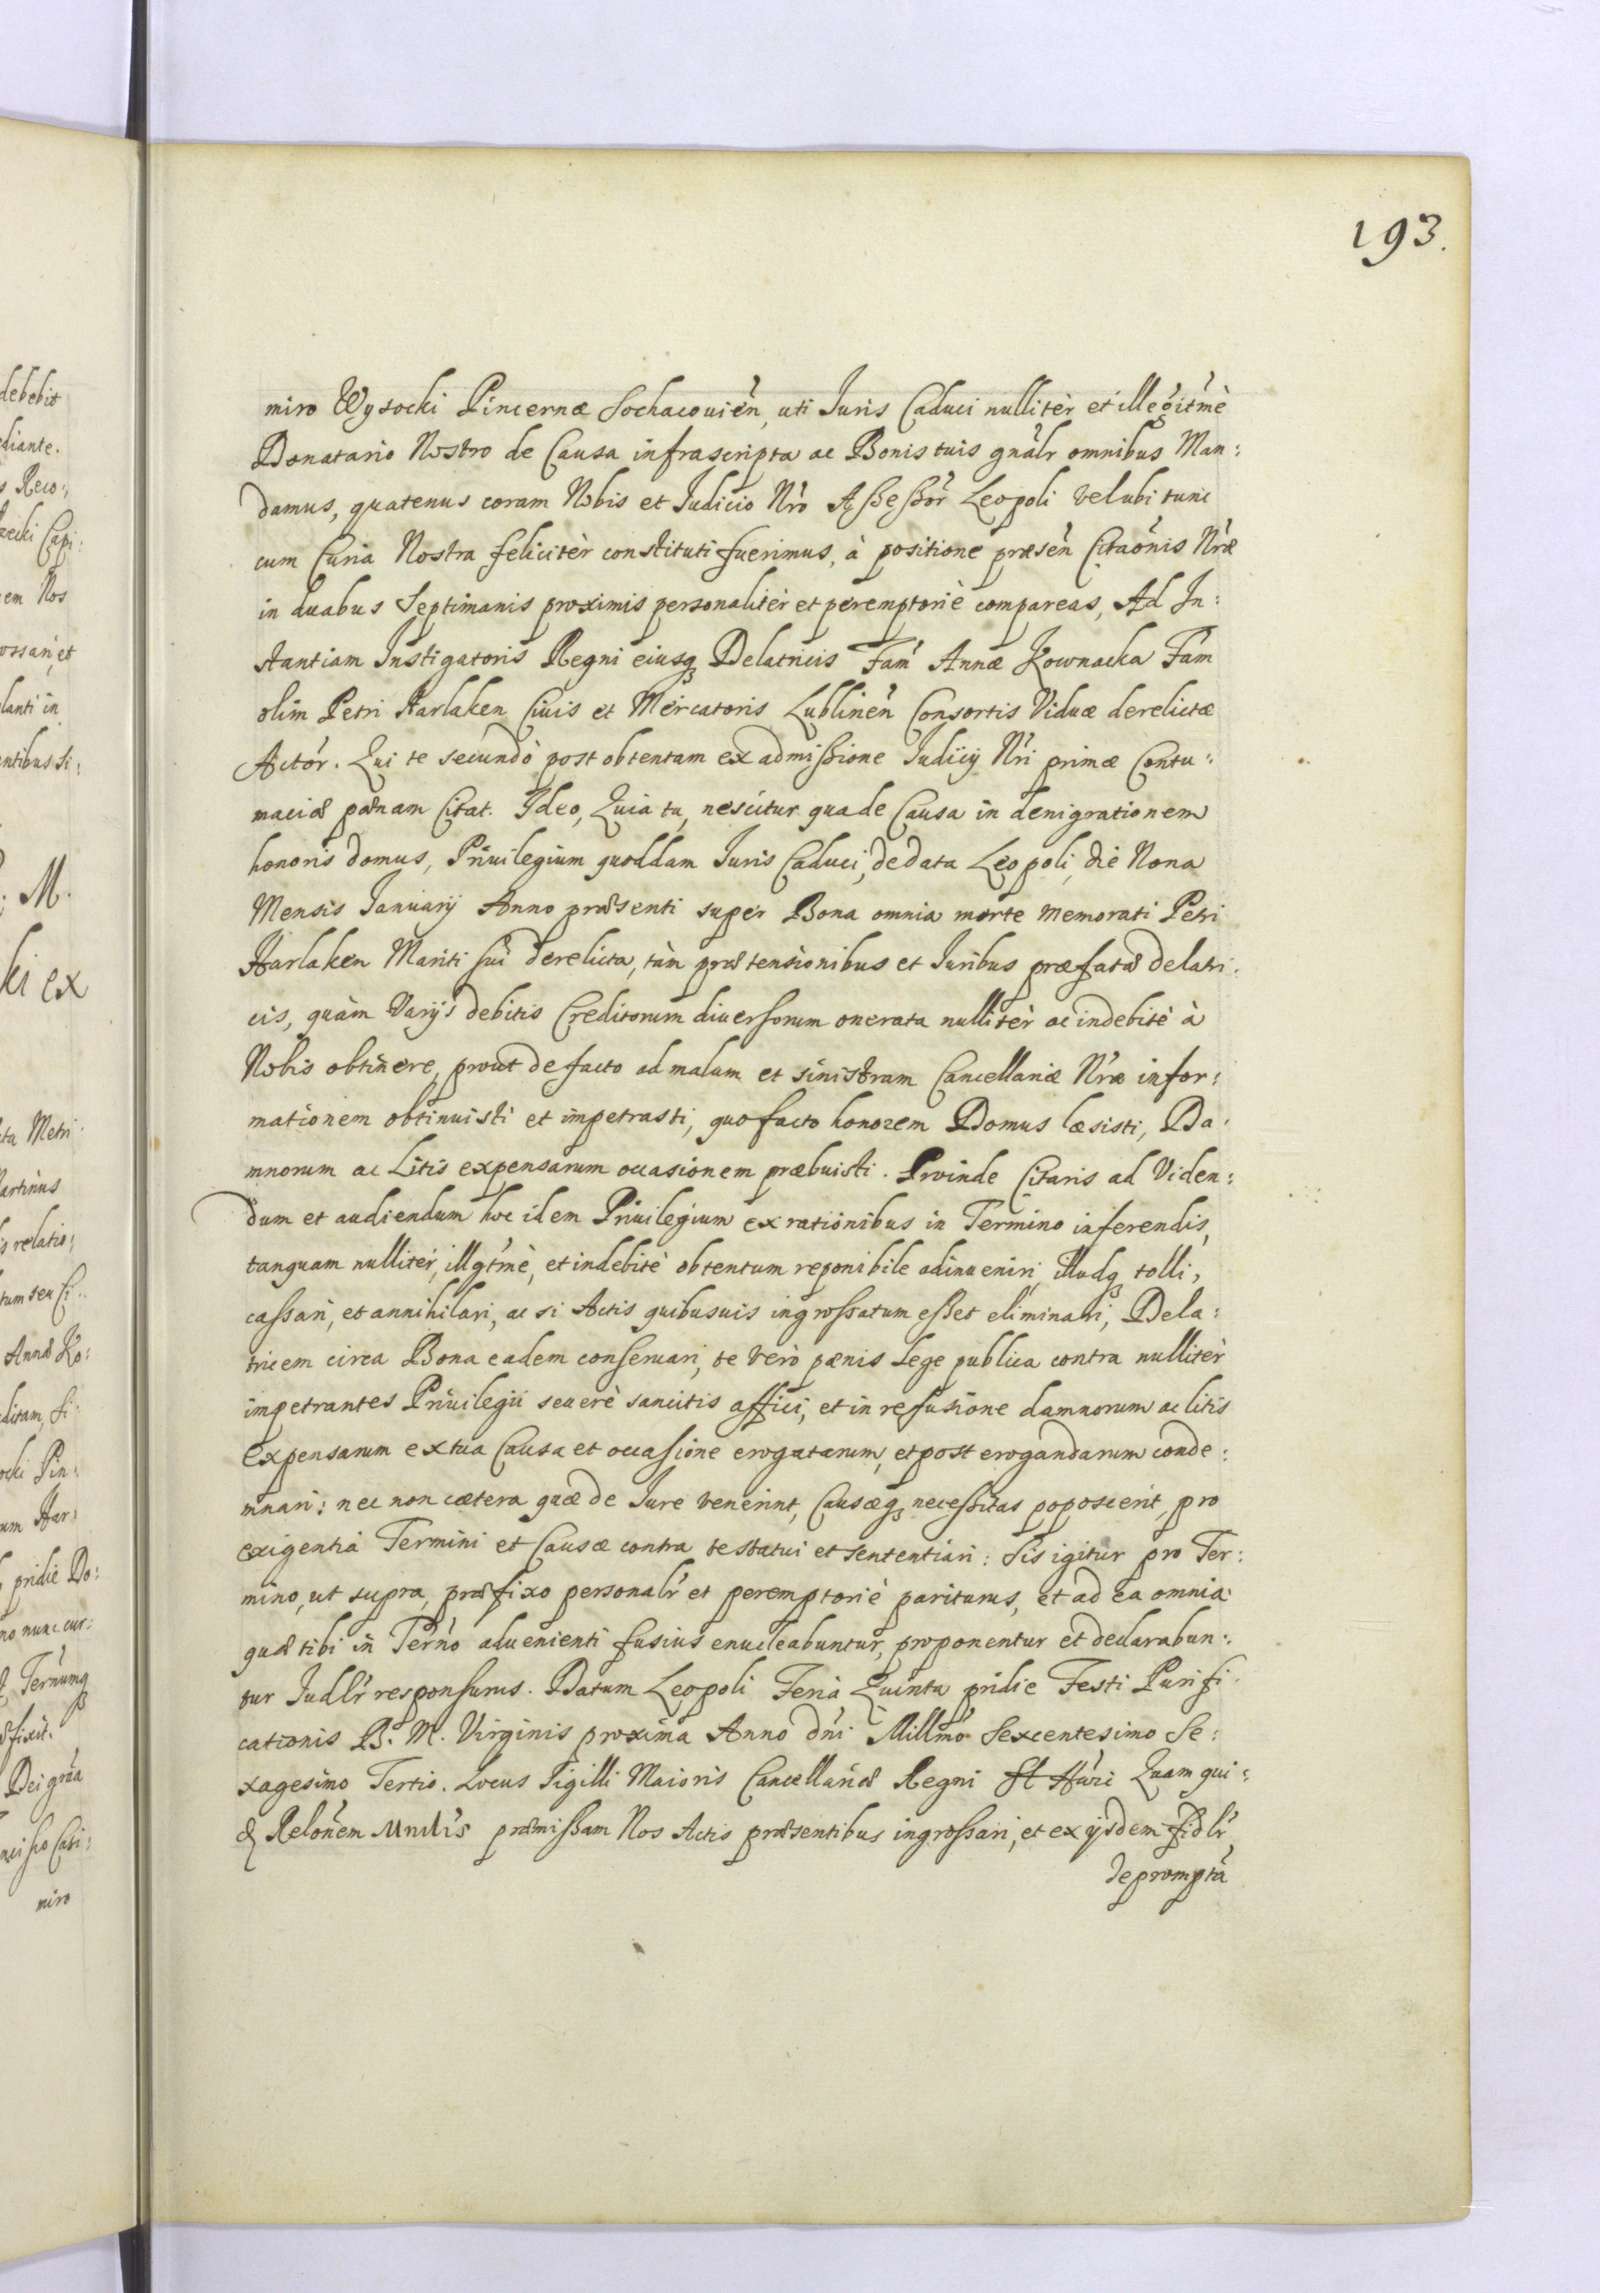 193.
miro Wysocki Pincernæ Sochacouień, uti Juris Caduci nullitèr et illegit̃mè
Donatario Nostro de Causa infrascripta ac Bonis tuis gnãlr omnibus Man:
damus, quatenus coram Nobis et Judicio Nr̃o Aßeßor̃ Leopoli vel ubi tunc
cum Curia Nostra felicitèr constituti fuerimus, à positione præseñ Citaõnis Nr̃æ
in duabus Septimanis proximis personalitèr et peremptoriè compareas, Ad In:
stantiam Instigatoris Regni eiusq₃ Delatricis Fam̃ Annæ Kownacka Fam̃
olim Petri Harlaken Ciuis et Mercatoris Lublineñ Consortis Viduæ derelictæ
Actor̃. Qui te secundò post obtentam ex admißione Judicÿ Nr̃i primæ Contu:
maciæ pœnam Citat. Ideo, Quia tu, nescitur qua de Causa in denigrationem
honoris domus, Priuilegium quoddam Juris Caduci, de data Leopoli, die Nona
Mensis Januarÿ Anno præsenti super Bona omnia morte memorati Petri
Harlaken Mariti sui derelicta, tàm prætensionibus et Juribus præfatæ delatri:
cis, quàm Varijs debitis Creditorum diuersorum onerata nullitèr ac indebitè à
Nobis obtinere, prout de facto ad malam et sinistram Cancellariæ Nr̃æ infor:
mationem obtinuisti et impetrasti, quo facto honorem Domus læsisti, Da:
mnorum ac Litis expensarum occasionem præbuisti. Proinde Citaris ad Viden:
dum et audiendum hoc idem Priuilegium ex rationibus in Termino inferendis,
tanquam nullitèr, illgt̃mè, et indebitè obtentum reponibile adinueniri, illudq₃ tolli,
caßari, et annihilari, ac si Actis quibusuis ingroßatum eßet eliminari, Dela:
tricem circa Bona eadem conseruari, te verò pœnis Lege publica contra nullitèr
impetrantes Priuilegii seuerè sancitis affici, et in refusione damnorum ac litis
expensarum ex tua Causa et occasione erogatarum, et post erogandarum conde:
mnari: nec non cætera quæ de Jure venerint, Causæq₃ neceßitas poposcerit, pro
exigentia Termini et Causæ contra te statui et sententiari: Sis igitur pro Ter:
mino, ut supra, præfixo personalr̃ et peremptoriè pariturus, et ad ea omnia
quæ tibi in Terño aduenienti fusius enucleabuntur, proponentur et declarabun:
tur Judlr̃ responsurus. Datum Leopoli Feria Quinta pridie Festi Purifi:
cationis B. M. Virginis proxima Anno dñi Millm̃o Sexcentesimo Se:
xagesimo Tertio. Locus Sigilli Maioris Cancellariæ Regni Quam qui:
& Reloñem præmißam Nos Actis præsentibus ingroßari, et ex ijsdem fidlr̃
depromptã